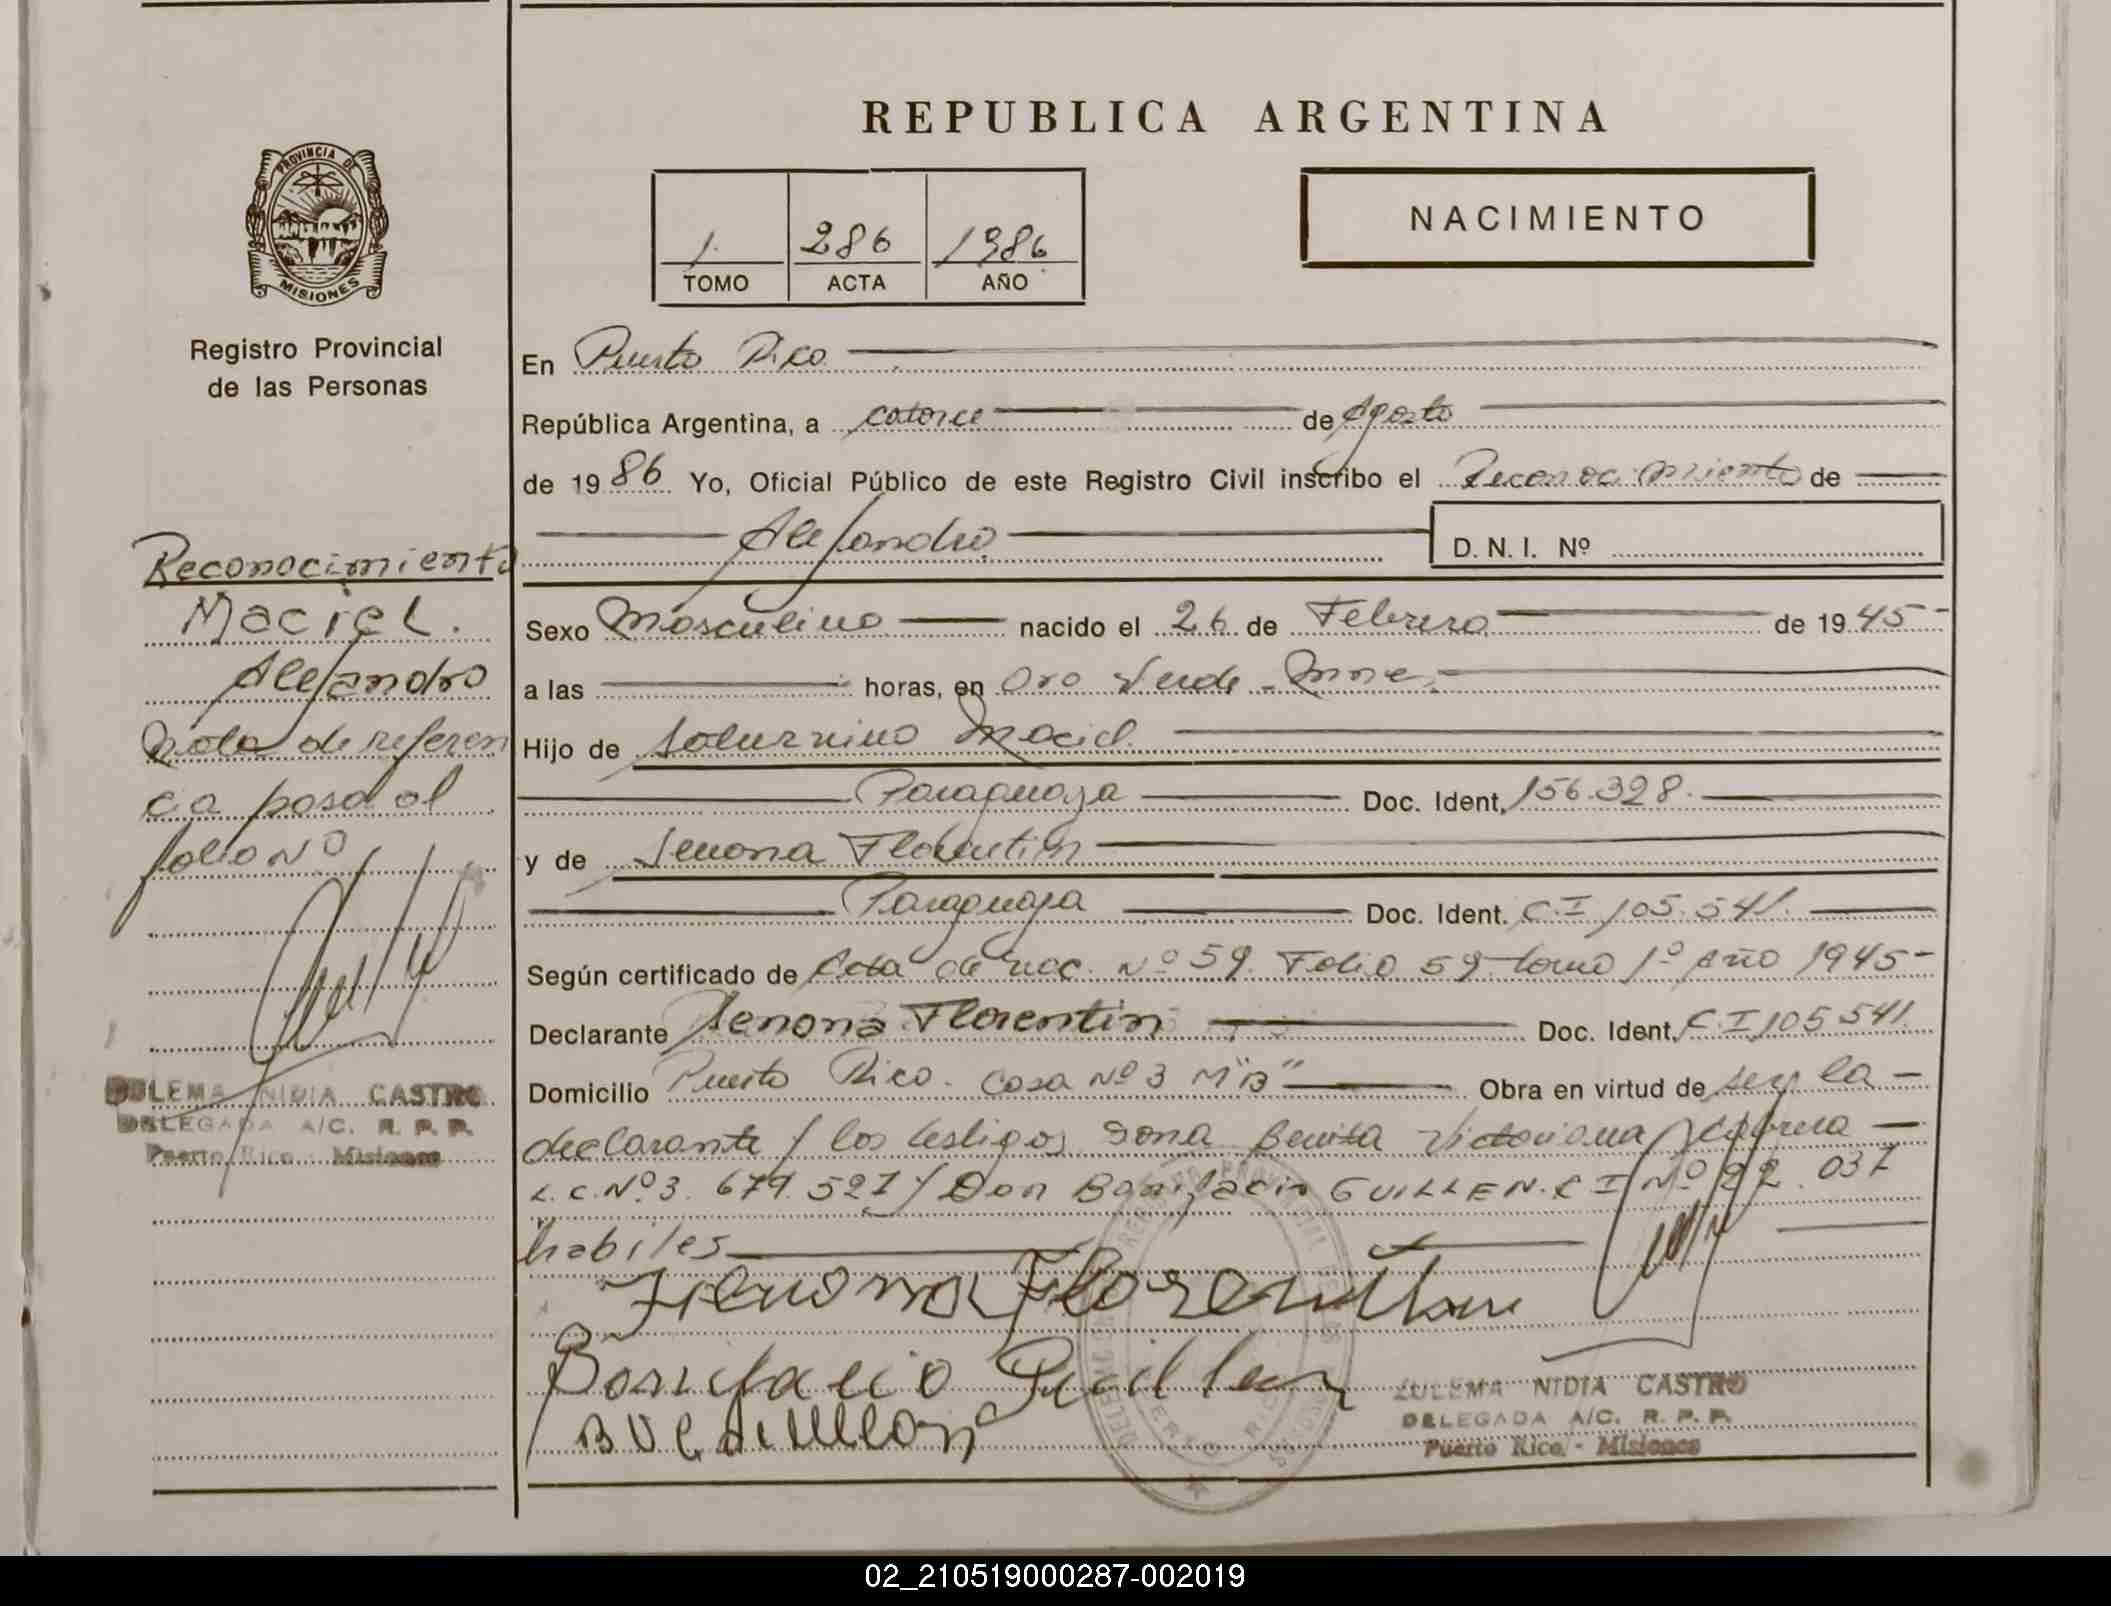 REPUBLICA ARGENTINA
PROVINCIA DE
MISIONES
Registro Provincial
de las Personas
NACIMIENTO
1 286 1986
TOMO ACTA AÑO
En Puerto Rico
República Argentina, a catorce de Agosto
de 1986 Yo, Oficial Público de este Registro Civil inscribo el Reconocimiento de
Alejandro
D. N. I. Nº
Sexo Masculino nacido el 26 de Febrero de 1945
a las horas, en Oro Verde - Mnes
Hijo de Saturnino Maciel
Paraguaya Doc. Ident. 156.328.
y de Zenona Florentin
Paraguaya Doc. Ident. C.I 105.541.
Según certificado de Acta de nac. Nº 59. Folio 59 tomo 1º Año 1945
Declarante Zenona Florentin Doc. Ident. C.I 105541.
Domicilio Puerto Rico. Casa Nº 3 M"B" Obra en virtud de ser la
declarante y los testigos Dona Benita Victoriana
L.C. Nº 3.679.527 y Don Bonifacio GUILLEN. C I Nº 92.037
habiles
Bonifacio Guillen
ZULEMA NIDIA CASTRO
DELEGADA A/C. R. P. P.
Puerto Rico - Misiones
Reconocimiento
Maciel.
Alejandro
Nota de referen
cia pasa al
folio Nº
ZULEMA NIDIA CASTRO
DELEGADA A/C. R. P. P.
Puerto Rico - Misiones
02_210519000287-002019